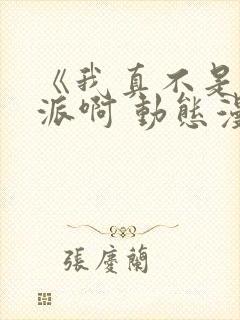 《我真不是
派啊 動態漫
張慶蘭